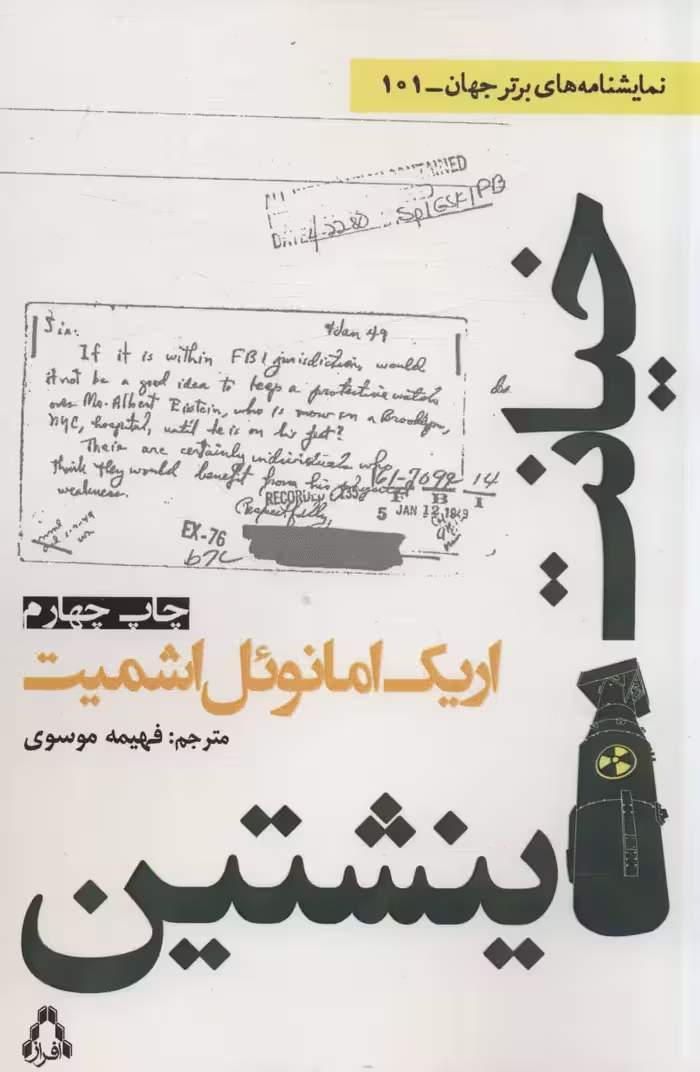 نمایشنامه‌های برتر جهان - ۱۰۱
CONTAINED
DATE 4-22-80 Sp1GSK/PB
خیانت
Sir:
4 Jan 49
If it is within FBI jurisdiction, would
it not be a good idea to keep a protective watch
over Mr. Albert Einstein, who is now in a Brooklyn,
NYC, hospital, until he is on his feet?
Their are certainly individuals who
think they would benefit from his
weakness.
61-7099 14
RECORDED
F B I
5 JAN 12 1949
Respectfully,
EX-76
b7C
چاپ چهارم
اریک امانوئل اشمیت
مترجم: فهیمه موسوی
اینشتین
افراز